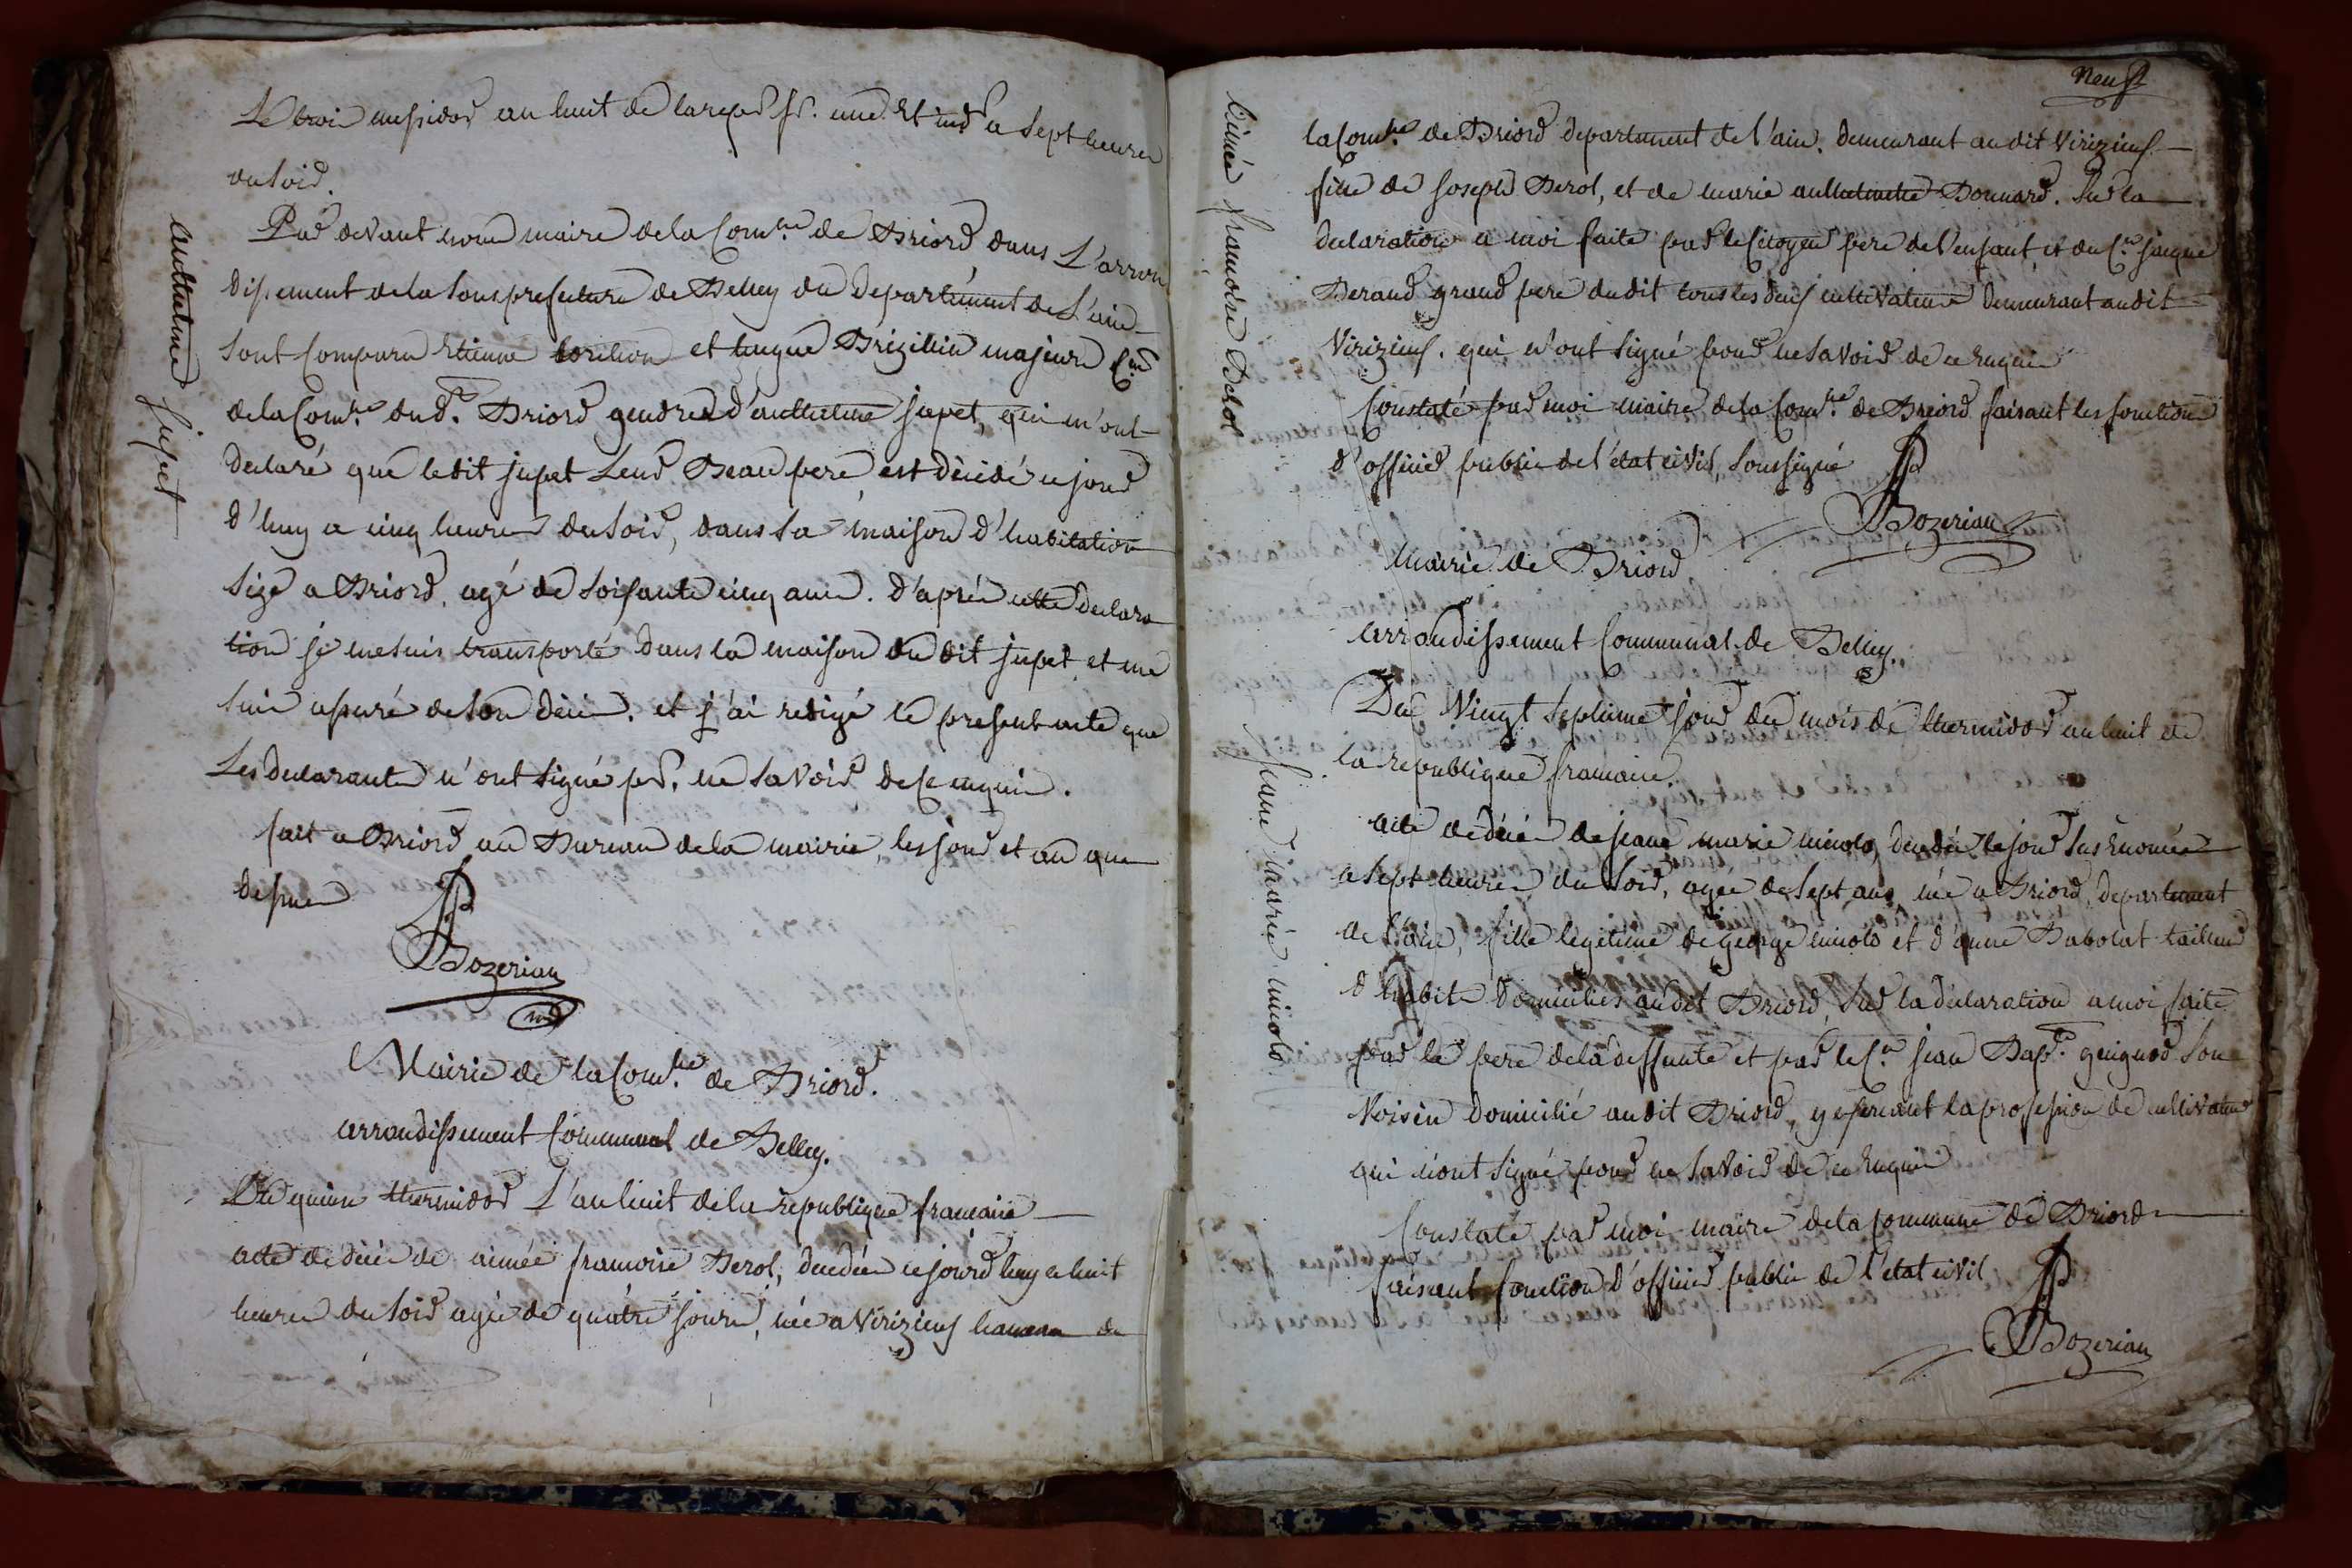 Le troi messidor an huit de la repu. fr. une et ind. a sept heures
du soir.
Par devant nous maire de la Comne de Briord dans L'arron
dissement de la Souprefecture de Belley du Departement de L'ain
Sont Comparu Etienne et hugue Brizillin majeurs Cns
de la Comne dud. Briord gendres d'anthelme jupet, qui m'ont
declaré que ledit jupet Leur Beau pere, est dècedé ce jour
d'huy a cinq heures du Soir, dans sa maison d'habitation
Size a Briord, agé de Soissante cinq ans. d'aprés cette declara
tion je me suis transporté dans la maison du dit jupet et me
suis assuré de son décés. et j'ai redigé le present acte que
Les declarants n'ont signé pr. ne savoir de ce enquis.
fait a Briord au Bureau de la mairie, les jour et an que
dessus
Bozerian
anthelme jupet
Mairie de la Comne de Briord.
arrondissement Communal de Belley.
Du quinze thermidor L'an huit de la republique francaise
acte de décés de aimée francoise Berot, decedée cejourd'huy a huit
heures du soir agée de quatre jours, née a Virizieux hameau de
neuf
la Comne de Briord departement de l'ain. demeurant au dit Virizieux
fille de joseph Berot, et de marie anthelmette Bonnard. Sur la
declaration a moi faite par le Citoyen pere de l'enfant, et du Cn jacque
Beraud grand pere dudit tous les deux cultivateurs demeurant audit
Virizieux. qui n'ont signé pour ne savoir de ce Enquis
Constaté par moi maire de la Comne de Briord faisant les fonctions
d'officier public de l'état civil, soussigné
Bozerian
aimée francoise Berot
Mairie de Briord
arrondissement Communal de Belley.
Du Vingt Septieme jour du mois de thermidor an huit de
la republique francaise.
acte de décés de jeane marie nicolo, decedée le jour sus Enomée
a Sept heures du Soir, agée de Sept ans, née a Briord, departement
de l'ain, fille legitime de george nicolo et d'anne Babolat tailleur
d'habits domiciliés audit Briord, Sur la declaration a moi faite
par le pere de la deffunte et par le Cn jean Bapte guiguod Son
Voisin domicilié audit Briord, y exercant la profession de cultivateur
qui n'ont signé pour ne savoir de ce Enquis
Constaté par moi maire de la Commune de Briord
faisant fonction d'officier public de l'état civil
Bozerian
jeane marie nicolo